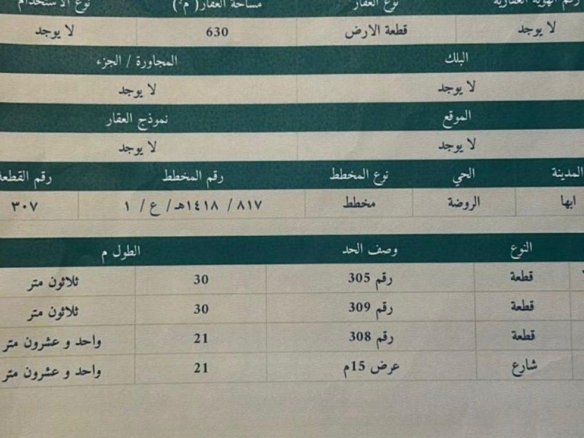 رقم الهوية العقارية نوع العقار مساحة العقار( م²) نوع الاستخدام
لا يوجد قطعة الارض 630 لا يوجد
البلك المجاورة / الجزء
لا يوجد لا يوجد
الموقع نموذج العقار
لا يوجد لا يوجد
المدينة الحي نوع المخطط رقم المخطط رقم القطعة
ابها الروضة مخطط ٨١٧/ ١٤١٨هـ/ ع/ ١ ٣٠٧
النوع وصف الحد الطول م
قطعة رقم 305 30 ثلاثون متر
قطعة رقم 309 30 ثلاثون متر
قطعة رقم 308 21 واحد و عشرون متر
شارع عرض 15م 21 واحد و عشرون متر